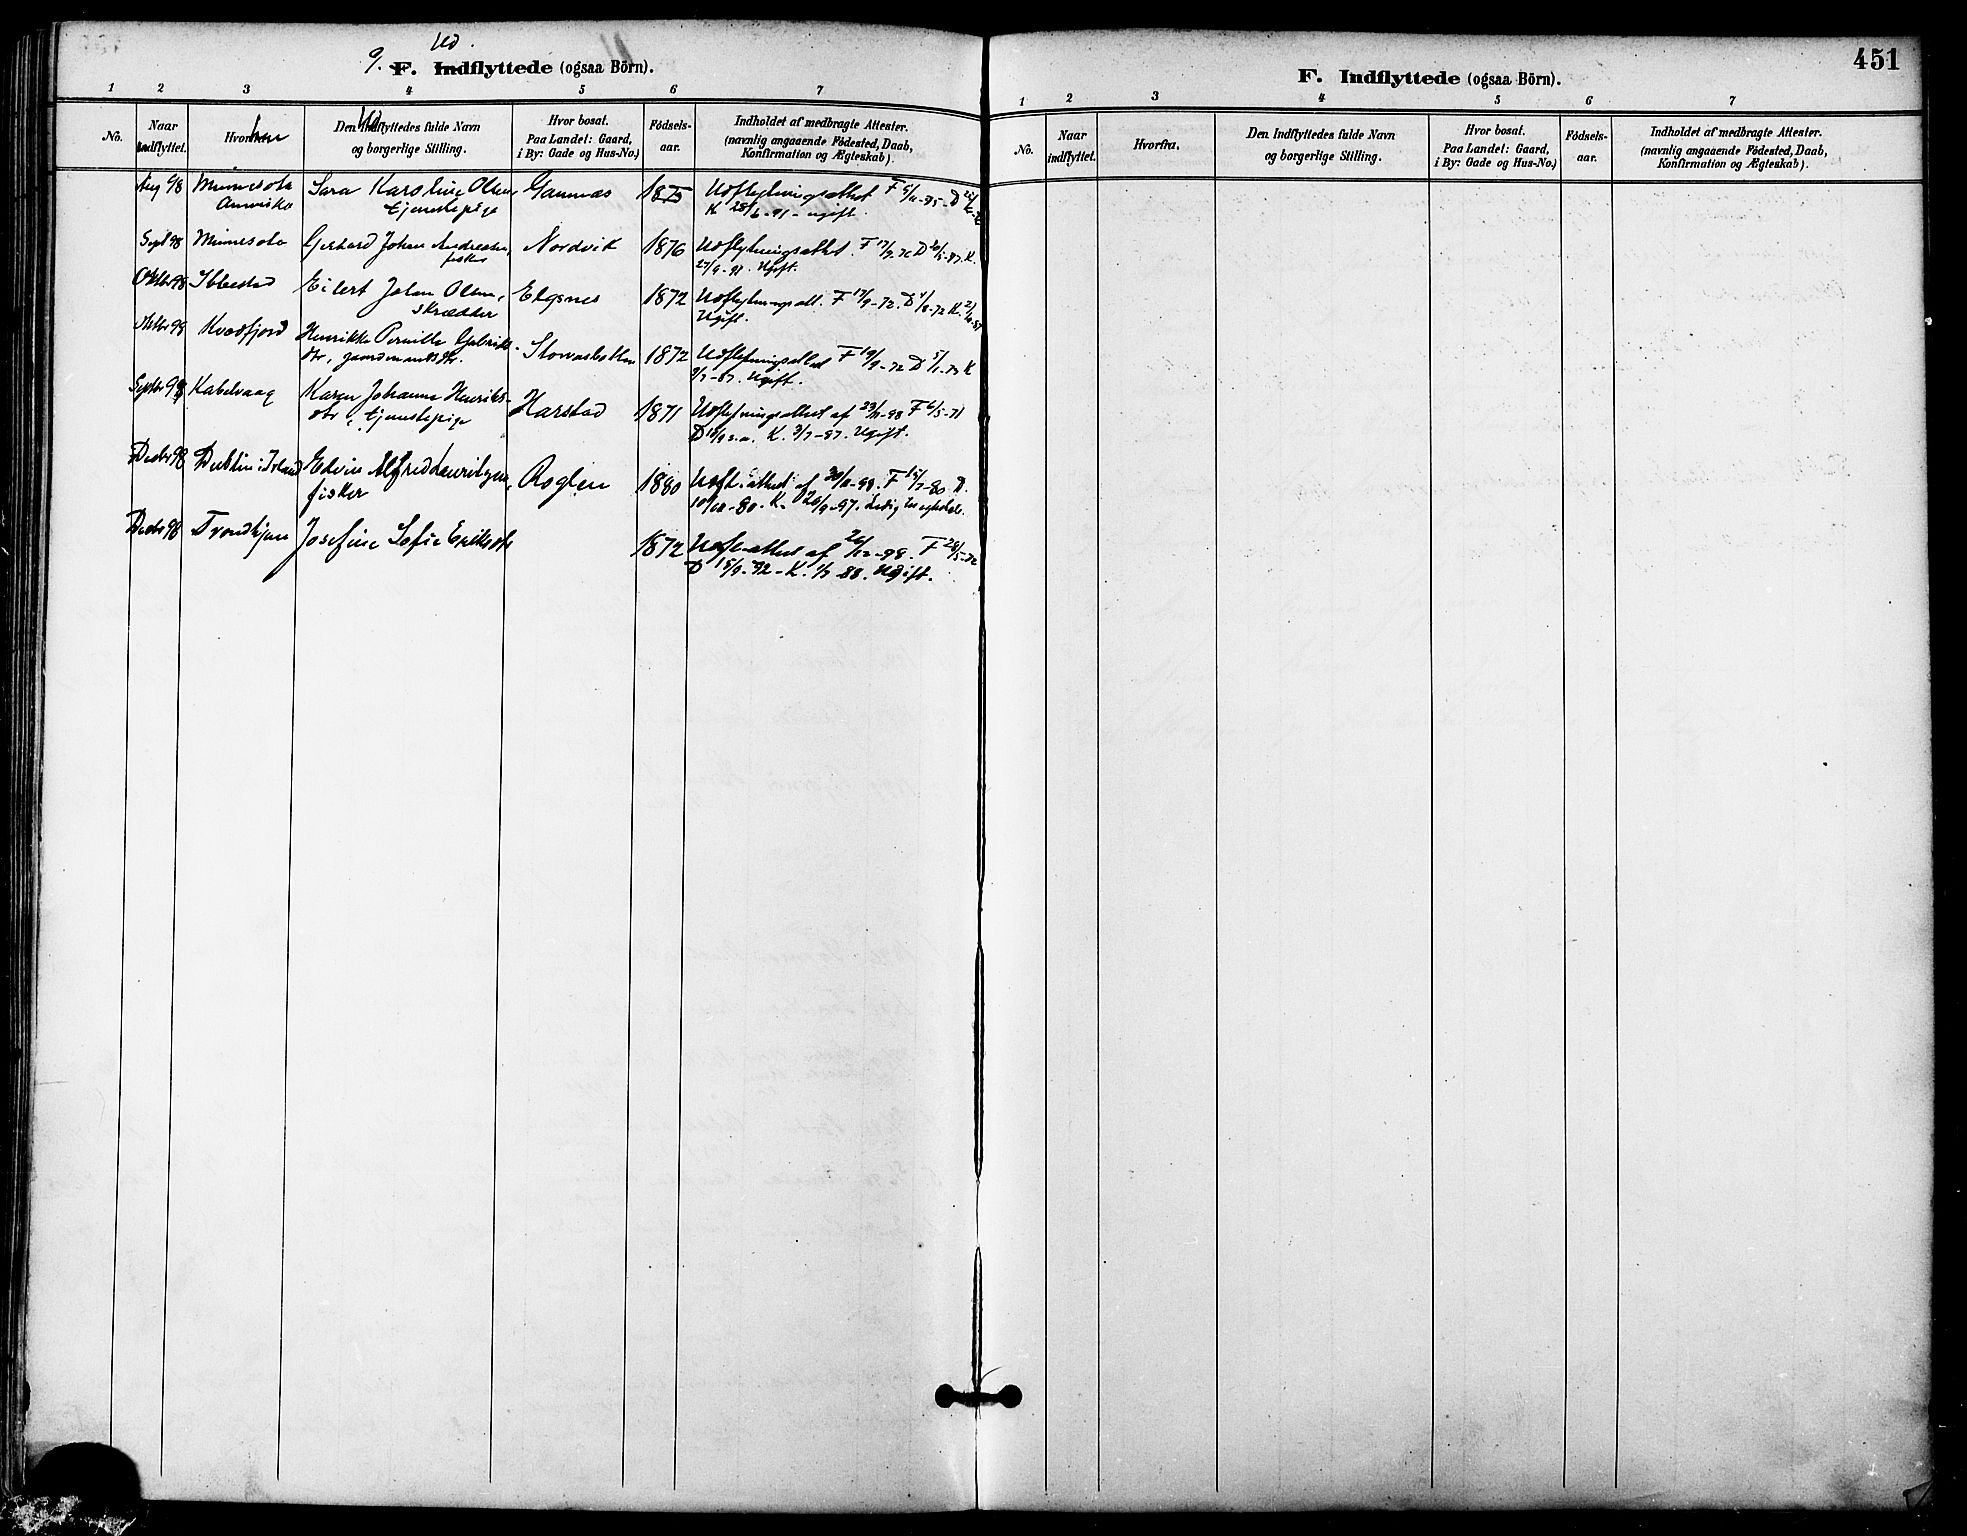 Ud.
9. F. Indflyttede (ogsaa Börn).
1 2 3 4 5 6 7
No.
Naar
indflyttet.
Hvorhen
Ud
Den Indflyttedes fulde Navn
og borgerlige Stilling.
Hvor bosat.
Paa Landet: Gaard,
i By: Gade og Hus-No.)
Födsels-
aar.
Indholdet af medbragte Attester.
(navnlig angaaende Födested, Daab,
Konfirmation og Ægteskab).
Aug 98 Minnesota Sara Karoline Olsen, 1875 Udflytningsattest
Amerika tjenestepige K 28/6-91 - ugift.
Septr 98 Minnesota Gerhard Johan Andreassen, Nordvik 1876 Udflytningsattest. F 17/7-76 D 20/5-87. K.
fisker 27/9-91. Ugift.
Oktbr 98 Ibbestad Eilert Johan Olsen, Elgsnes 1872 Udflytningsatt. F 17/9-72. D
skrædder Ugift.
Oktbr 98 Kvædfjord Henrikke Pernille Gabriels- 1872 Udflytningsattest F 19/9-72 D 5/1-73 K
dtr, gaardmandsdtr. 3/7-87. Ugift.
Septbr 98 Kabelvaag Karen Johanna Henriks- Harstad 1871 Udflytningsattest af 23/11-98 F 6/5-71
dtr, tjenestepige D 15/9 s.a. K. 3/7-87. Ugift.
Decbr 98 Dublin i Irland Edvin Alfred Lauritzen, Roglen 1880 Udfl. attest af 30/11-98. F 15/7-80. D.
fisker 10/10-80. K. 26/9-97. Ledig for ægteskab.
Decbr 98 Trondhjem Josefine Sofie Eriksdtr 1872 Udfl. attest af 26/12-98. F 28/5-72
D 15/9-72 - K. 1/7-88. Ugift.
451
F. Indflyttede (ogsaa Börn).
1 2 3 4 5 6 7
No.
Naar
indflyttet.
Hvorfra.
Den Indflyttedes fulde Navn
og borgerlige Stilling.
Hvor bosat.
Paa Landet: Gaard,
i By: Gade og Hus-No.)
Födsels-
aar.
Indholdet af medbragte Attester.
(navnlig angaaende Födested, Daab,
Konfirmation og Ægteskab).